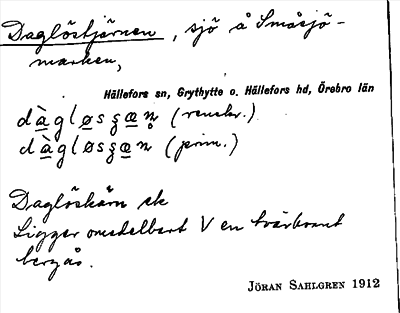 Daglöstjärnen, sjö å Småsjö-
marken,
Hällefors sn, Grythytte o. Hällefors hd, Örebro län
dàgløsʒæn̥ (renskr.)
dàgløsʒæn (prim.)
Daglöskärn ek
Ligger omedelbart V en tvärbrant
bergås.
JÖRAN SAHLGREN 1912